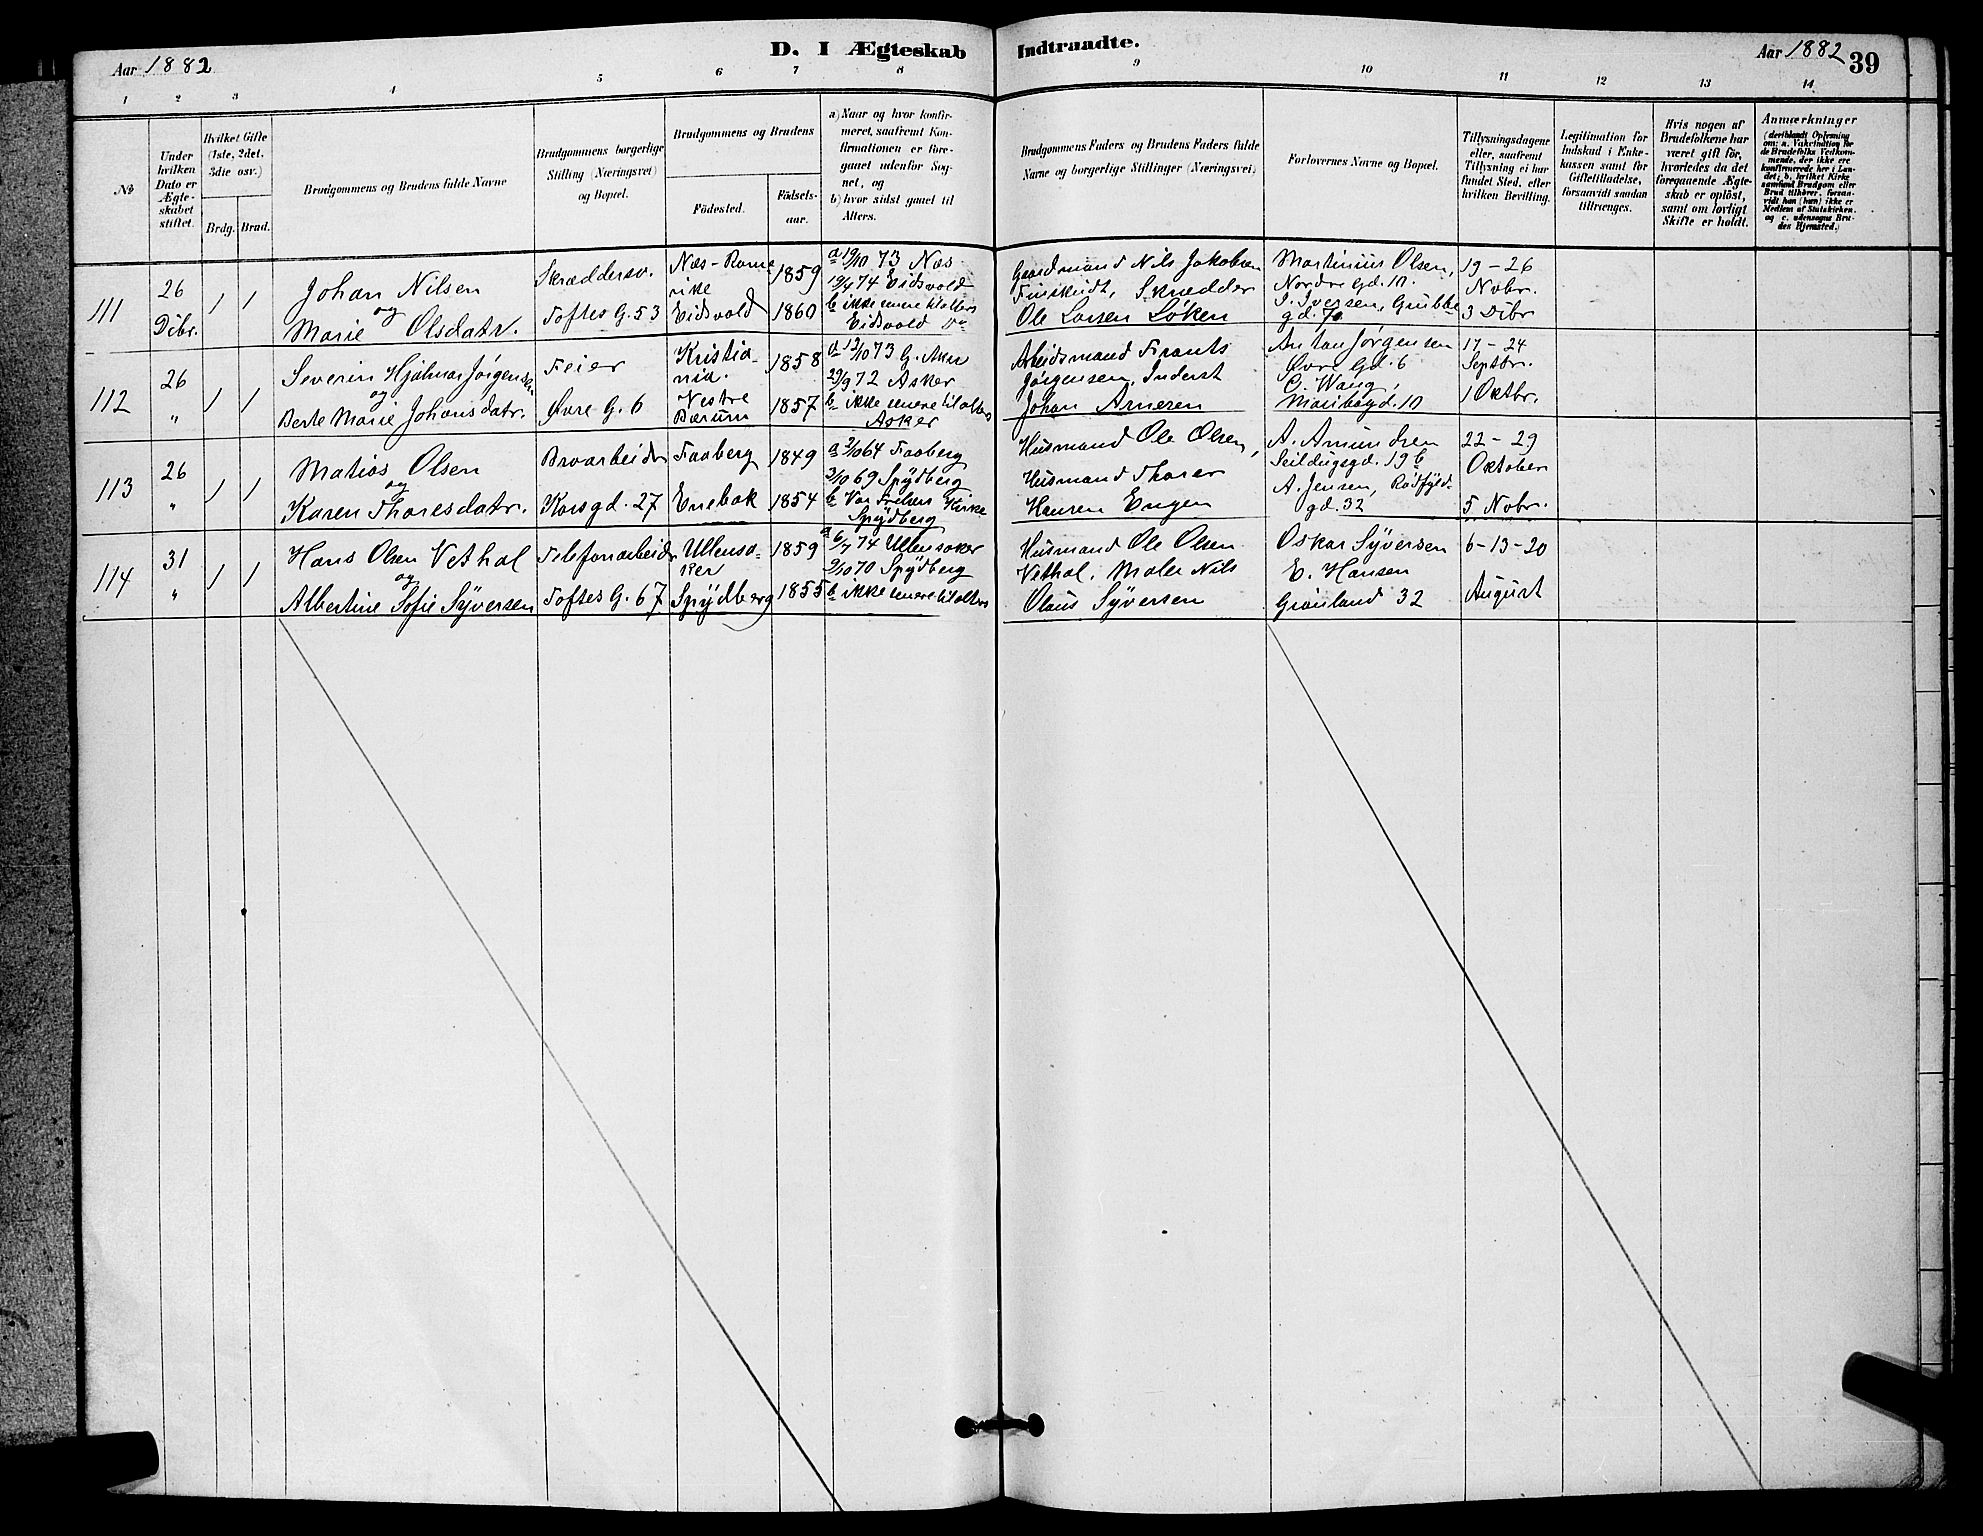 Aar 1882
D. I Ægteskab Indtraadte.
Aar 1882 39
1 2 3 4 5 6 7 8 9 10 11 12 13 14
№
Under hvilken Dato er Ægteskabet stiftet.
Hvilket Gifte (1ste, 2det, 3die osv.)
Brdg. Brud.
Brudgommens og Brudens fulde Navne
Brudgommens borgerlige Stilling (Næringsvei) og Bopæl.
Brudgommens og Brudens
Födested. Födselsaar.
a) Naar og hvor konfirmeret, saafremt Konfirmationen er foregaaet udenfor Sognet, og
b) hvor sidst gaaet til Alters.
Brudgommens Faders og Brudens Faders fulde Navne og borgerlige Stillinger (Næringsvei)
Forlovernes Navne og Bopæl.
Tillysningsdagene eller, saafremt Tillysning ei har fundet Sted, efter hvilken Bevilling.
Legitimation for Indskud i Enkekassen samt for Giftetilladelse, forsaavidt saadan tiltrænges.
Hvis nogen af Brudefolkene har været gift för, hvorledes da det foregaaende Ægteskab er oplöst, samt om lovligt Skifte er holdt.
Anmærkninger
(deriblandt Oplysning om: a. Vakcination for de Brudefolks Vedkommende, der ikke ere konfirmerede her i Landet; b. hvilket Kirkesamfund Brudgom eller Brud tilhører, forsaavidt han (hun) ikke er Medlem af Statskirken, og c. udensogns Brudes Hjemsted.)
111
26
Dcbr.
1 1
Johan Nilsen
og
Marie Olsdatr.
Skræddersv.
Toftes G. 53
Næs - Rome
rike
Eidsvold
1859
1860
a 19/10 73 Næs
19/4 74 Eidsvold
b ikke senere til alters
Eidsvold Do
Gaardmand Nils Jakobsen
Finskudt, Skrædder
Ole Larsen Løken
Martinius Olsen,
Nordre Gd. 10.
I. Iversen, Grubbe
gd. 7
19 - 26
Nobr.
3 Dcbr
112
26
"
1 1
Severin Hjalmar Jørgensen
og
Berte Marie Johansdatr.
Feier
Øvre G. 6
Kristia-
nia.
Vestre
Bærum
1858
1857
a 12/10 73 G. Aker
29/9 72 Asker
b ikke senere til alters
Asker
Arbeidsmand Frants
Jørgensen, Inderst
Johan Arnesen
Anton Jørgensen
Øvre Gd. 6
C. Wang,
Maribogd. 10
17 - 24
Septbr.
1 Oktbr.
113
26
"
1 1
Matias Olsen
og
Karen Thoresdatr.
Broarbeider
Korsgd. 27
Faaberg
Enebak
1849
1854
a 2/10 64 Faaberg
3/10 69 Spydberg
b Vor Frelsers Kirke
Spydberg
Husmand Ole Olsen,
Husmand Thorer
Hansen Engen
A. Amundsen
Seildugsgd. 19 b
A. Jensen, Rødfyld-
gd. 32
22 - 29
Oktober
5 Nobr.
114
31
"
1 1
Hans Olsen Vethal
og
Albertine Sofie Syversen
Telefonarbeider
Toftes G. 67
Ullensa-
ker
Spydberg
1859
1855
a 6/7 74 Ullensaker
2/10 70 Spydberg
b ikke senere til alters
Husmand Ole Olsen
Vethal, Maler Nils
Olaus Syversen
Oskar Syversen
E. Hansen
Grønland 32
6 - 13 - 20
August